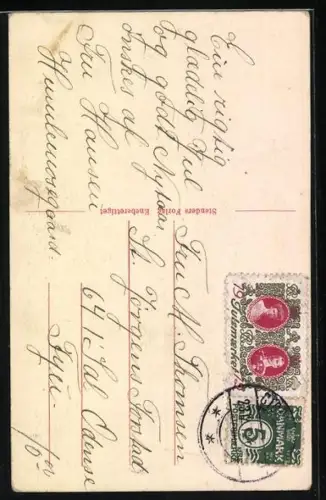 Eine rigtig
glædelig Jul
og godt Nytaar
ønskes af
Fru Hansen
Humlemosegaard.
Stenders Forlag Eneberettiget
Fru M. Thomsen
St Jørgens
64 1 Sal Odense
Fyn
19 Julemærket
DANMARK
5